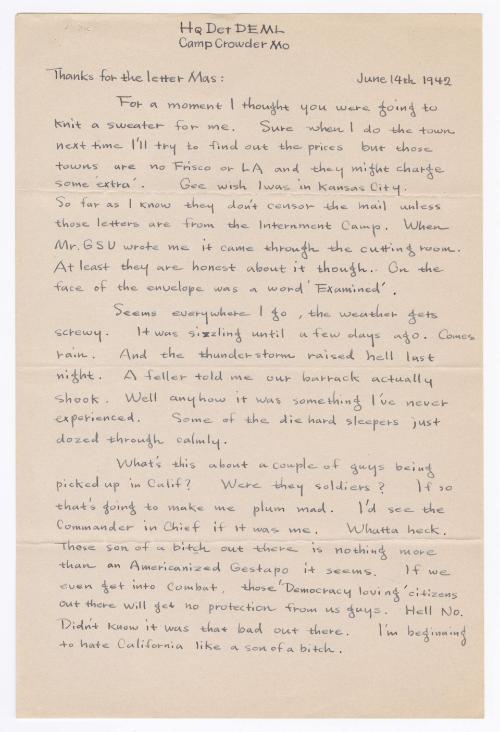 Hq Det DEML
Camp Crowder Mo
Thanks for the letter Mas: June 14th 1942
For a moment I thought you were going to
knit a sweater for me. Sure when I do the town
next time I'll try to find out the prices but those
towns are no Frisco or LA and they might charge
some 'extra'. Gee wish I was in Kansas City.
So far as I know they don't censor the mail unless
those letters are from the Internment Camp. When
Mr. GSU wrote me it came through the cutting room.
At least they are honest about it though. On the
face of the envelope was a word 'Examined'.
Seems everywhere I go, the weather gets
screwy. It was sizzling until a few days ago. Comes
rain. And the thunderstorm raised hell last
night. A feller told me our barrack actually
shook. Well anyhow it was something I've never
experienced. Some of the die hard sleepers just
dozed through calmly.
What's this about a couple of guys being
picked up in Calif? Were they soldiers? If so
that's going to make me plum mad. I'd see the
Commander in Chief if it was me. Whatta heck.
Those son of a bitch out there is nothing more
than an Americanized Gestapo it seems. If we
even get into combat, those 'Democracy loving' citizens
out there will get no protection from us guys. Hell No.
Didn't know it was that bad out there. I'm beginning
to hate California like a son of a bitch.